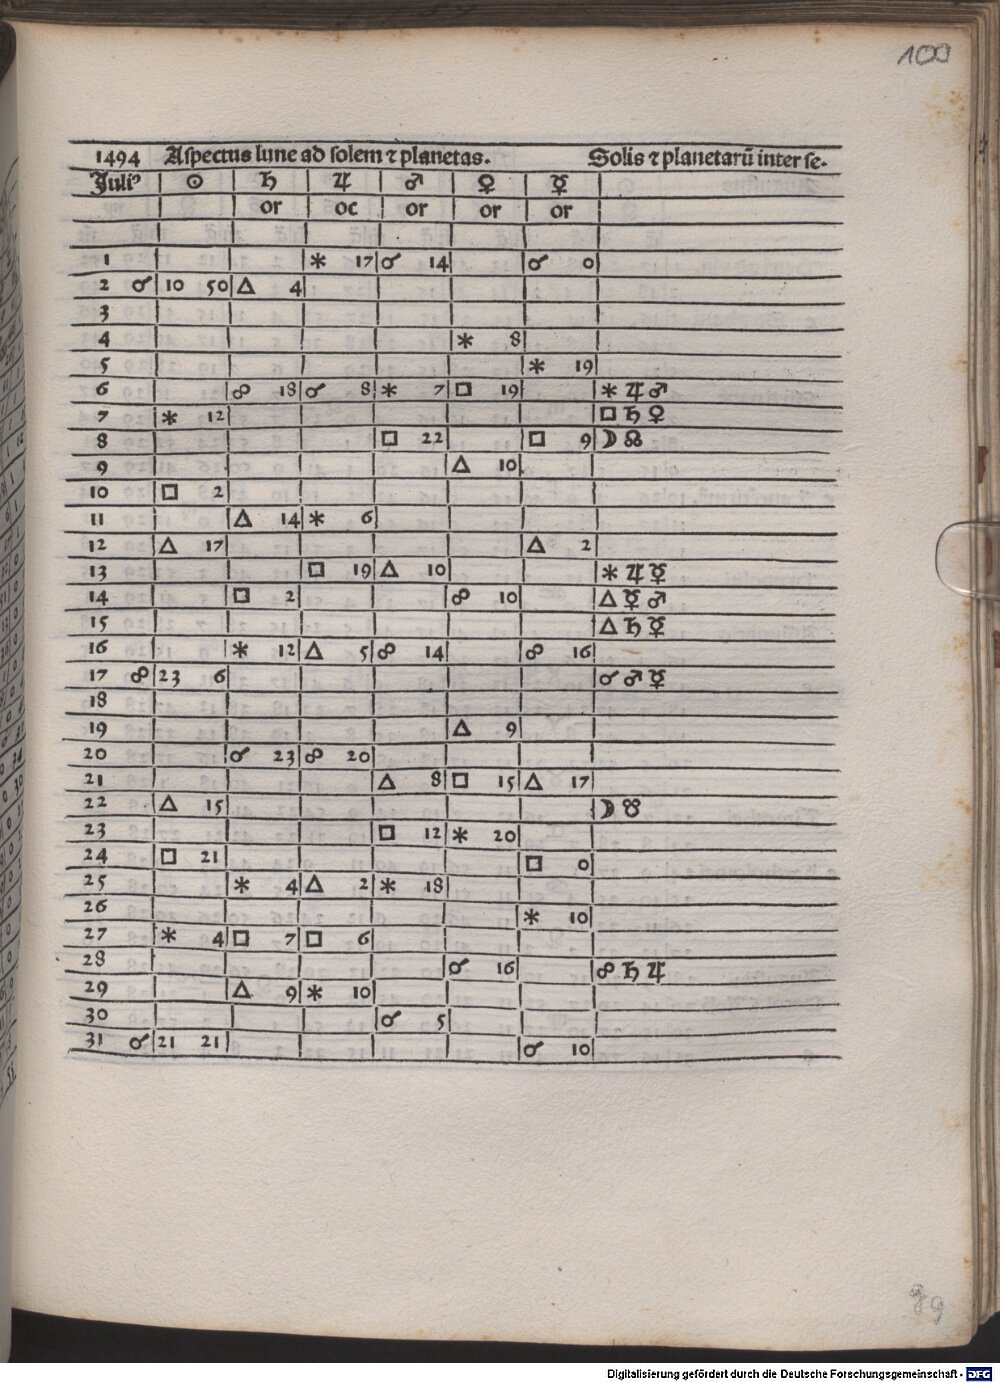 100
1494 Aſpectus lune ad ſolem ⁊ planetas. Solis ⁊ planetarū inter ſe.
Juliꝰ ☉ ♄ ♃ ♂ ♀ ☿
or oc or or or
1 ⚹ 17 ☌ 14 ☌ 0
2 ☌ 10 50 △ 4
3
4 ⚹ 8
5 ⚹ 19
6 ☍ 18 ☌ 8 ⚹ 7 □ 19 ⚹ ♃ ♂
7 ⚹ 12 □ ♄ ♀
8 □ 22 □ 9 ☽ ☊
9 △ 10
10 □ 2
11 △ 14 ⚹ 6
12 △ 17 △ 2
13 □ 19 △ 10 ⚹ ♃ ☿
14 □ 2 ☍ 10 △ ☿ ♂
15 △ ♄ ☿
16 ⚹ 12 △ 5 ☍ 14 ☍ 16
17 ☍ 23 6 ☌ ♂ ☿
18
19 △ 9
20 ☌ 23 ☍ 20
21 △ 8 □ 15 △ 17
22 △ 15 ☽ ☋
23 □ 12 ⚹ 20
24 □ 21 □ 0
25 ⚹ 4 △ 2 ⚹ 18
26 ⚹ 10
27 ⚹ 4 □ 7 □ 6
28 ☌ 16 ☍ ♄ ♃
29 △ 9 ⚹ 10
30 ☌ 5
31 ☌ 21 21 ☌ 10
Digitalisierung gefördert durch die Deutsche Forschungsgemeinschaft - DFG